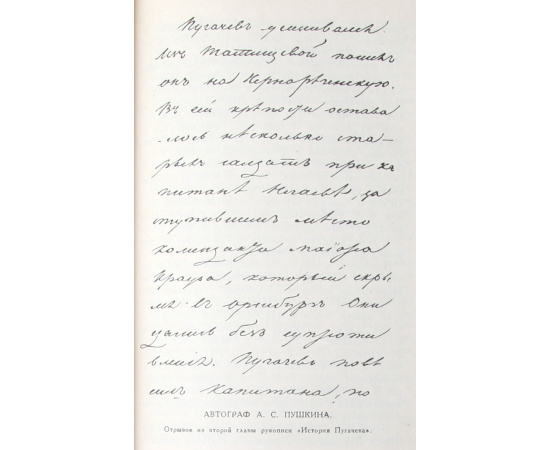 Пугачевъ усиливался.
Изъ Татищевой пошелъ
онъ на Чернорѣченскую.
Въ сей крѣпости остава
лось нѣсколько ста-
рыхъ солдатъ при ка
питанѣ Нечаевѣ, за
ступившемъ мѣсто
коменданта маіора
Краузе, который скры
лся въ Оренбургъ Они
сдались безъ супроти
вленія. Пугачевъ повѣ
силъ Капитана, по
АВТОГРАФ А. С. ПУШКИНА.
Отрывок из второй главы рукописи «История Пугачева».